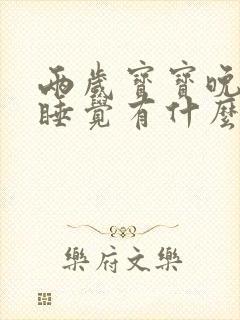 兩歲寶寶晚
睡覺有什麼
樂府文樂